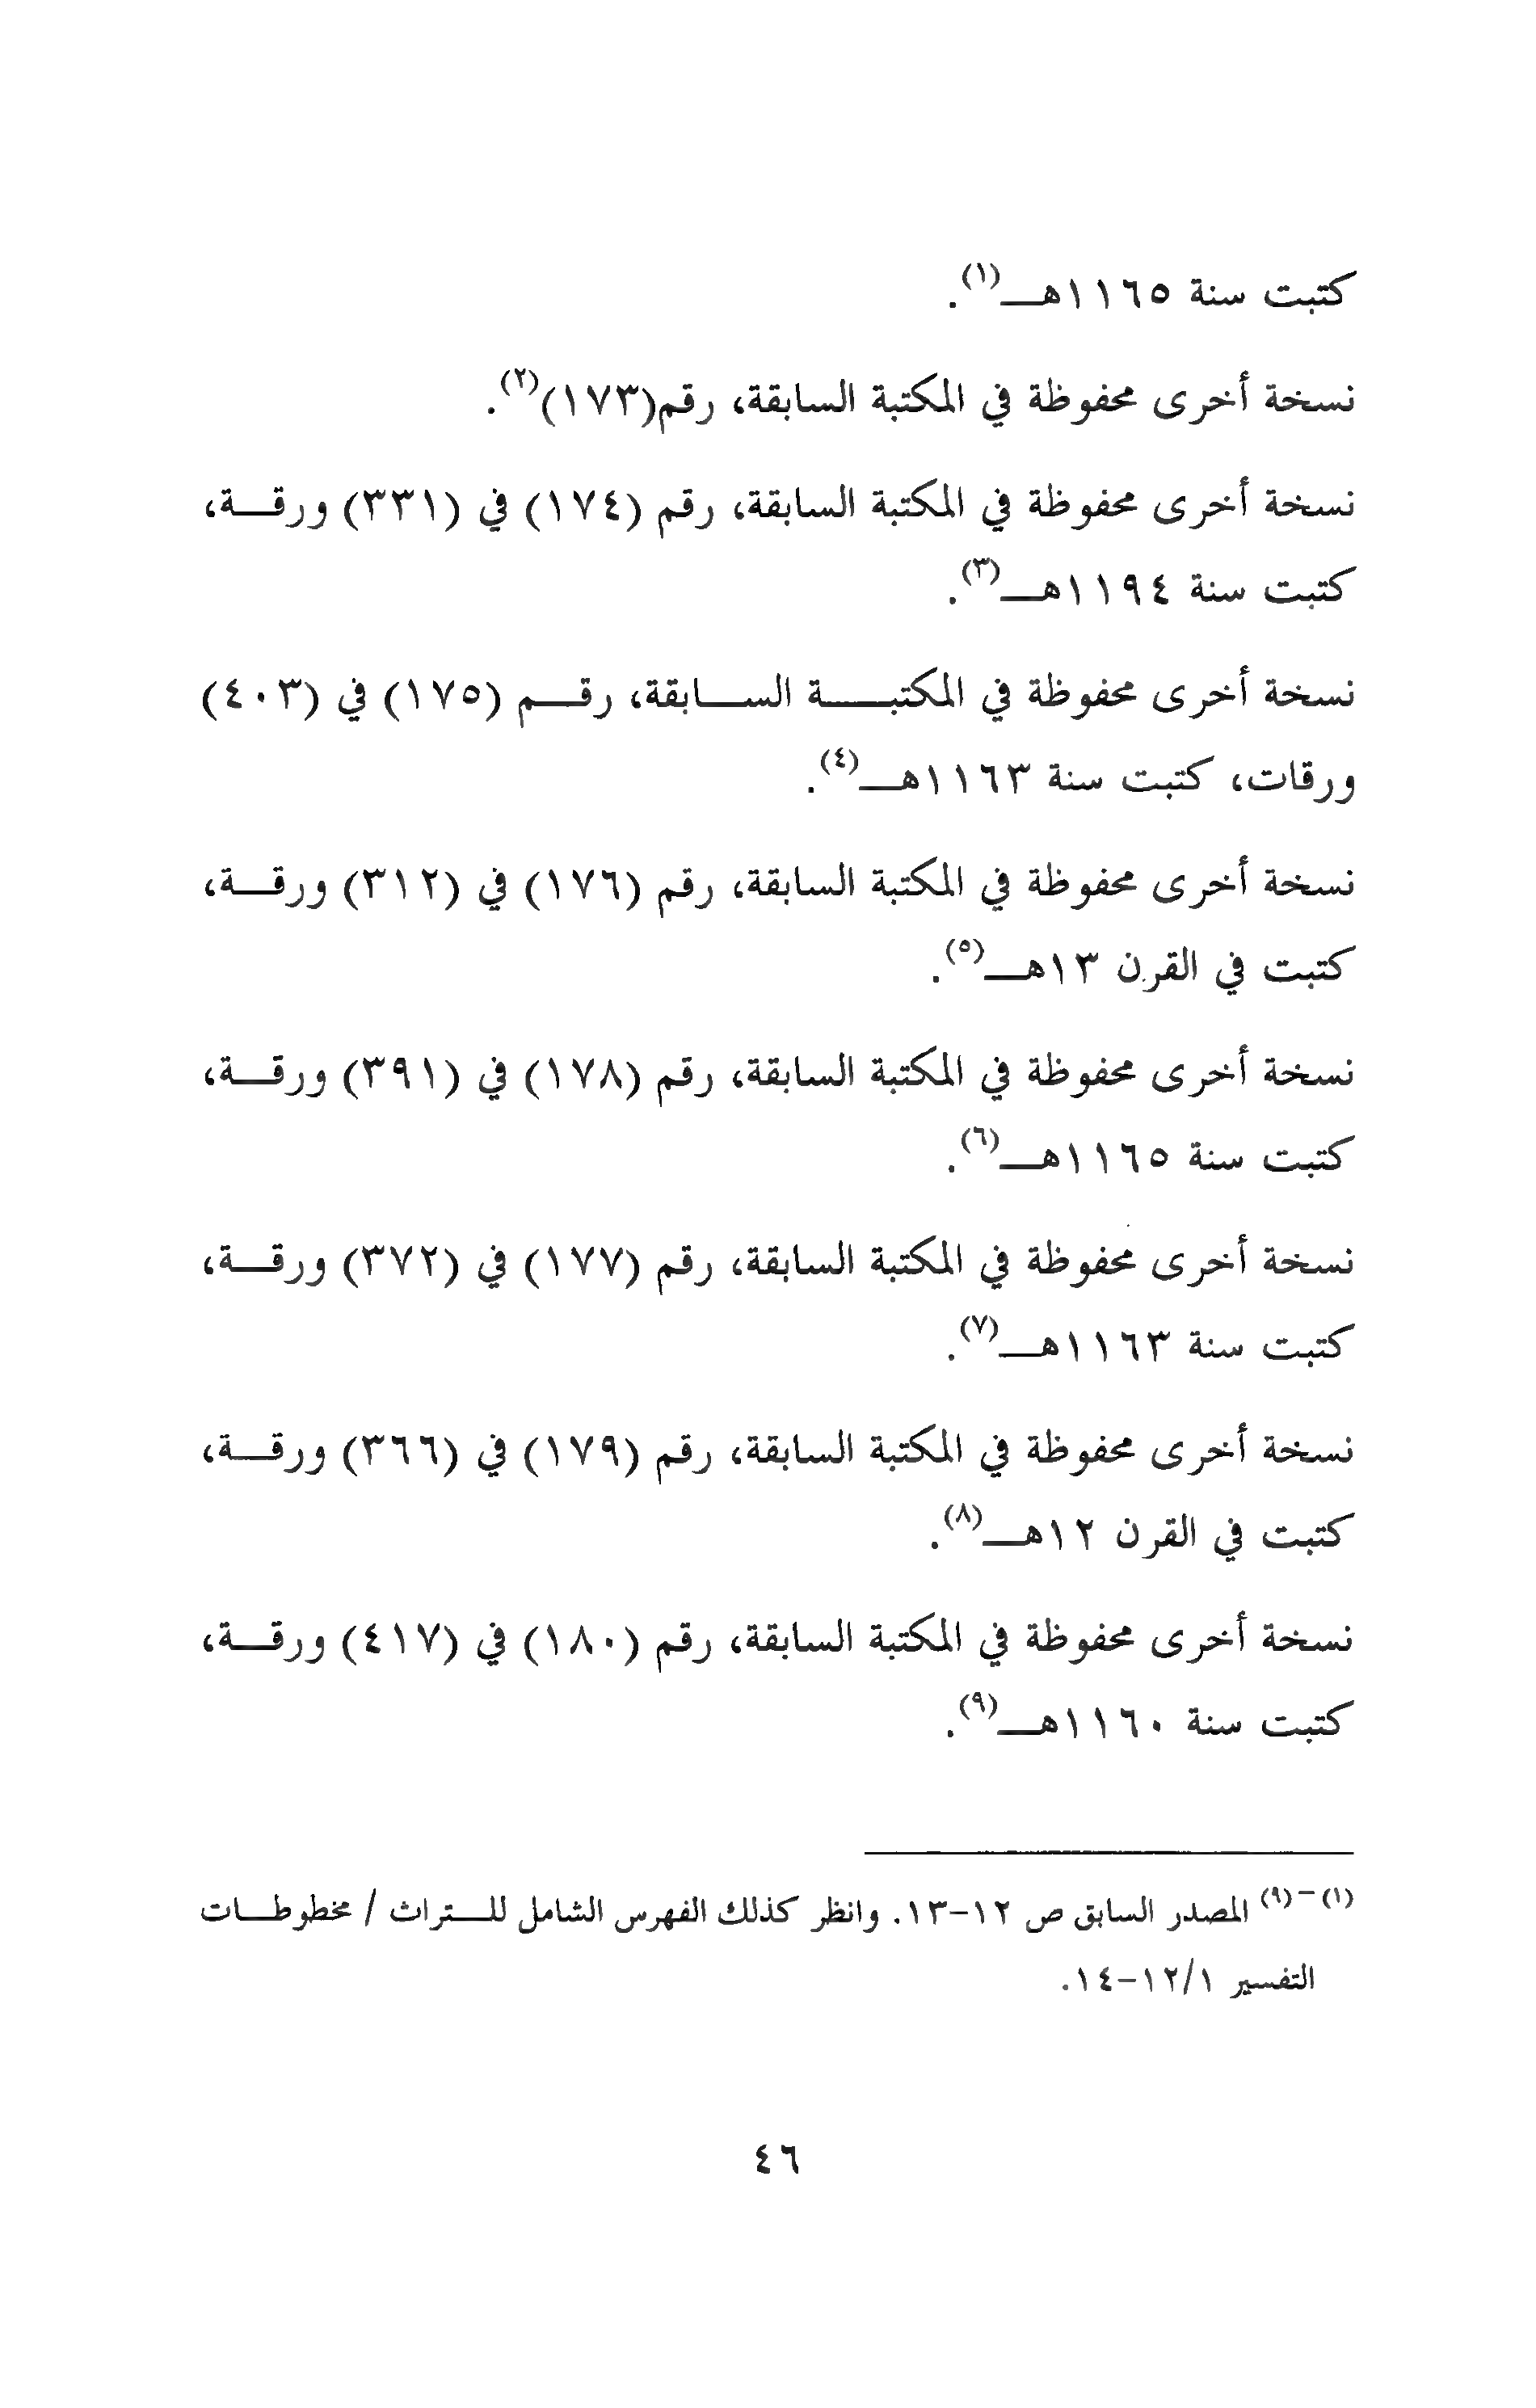 كتبت سنة ١١٦٥هـ(١).
نسخة أخرى محفوظة في المكتبة السابقة، رقم(١٧٣)(٢).
نسخة أخرى محفوظة في المكتبة السابقة، رقم (١٧٤) في (٣٣١) ورقة،
كتبت سنة ١١٩٤هـ(٣).
نسخة أخرى محفوظة في المكتبة السابقة، رقم (١٧٥) في (٤٠٣)
ورقات، كتبت سنة ١١٦٣هـ(٤).
نسخة أخرى محفوظة في المكتبة السابقة، رقم (١٧٦) في (٣١٢) ورقة،
كتبت في القرن ١٣هـ(٥).
نسخة أخرى محفوظة في المكتبة السابقة، رقم (١٧٨) في (٣٩١) ورقة،
كتبت سنة ١١٦٥هـ(٦).
نسخة أخرى محفوظة في المكتبة السابقة، رقم (١٧٧) في (٣٧٢) ورقة،
كتبت سنة ١١٦٣هـ(٧).
نسخة أخرى محفوظة في المكتبة السابقة، رقم (١٧٩) في (٣٦٦) ورقة،
كتبت في القرن ١٢هـ(٨).
نسخة أخرى محفوظة في المكتبة السابقة، رقم (١٨٠) في (٤١٧) ورقة،
كتبت سنة ١١٦٠هـ(٩).
(١)-(٩) المصدر السابق ص ١٢-١٣. وانظر كذلك الفهرس الشامل للتراث / مخطوطات
التفسير ١٢/١-١٤.
٤٦